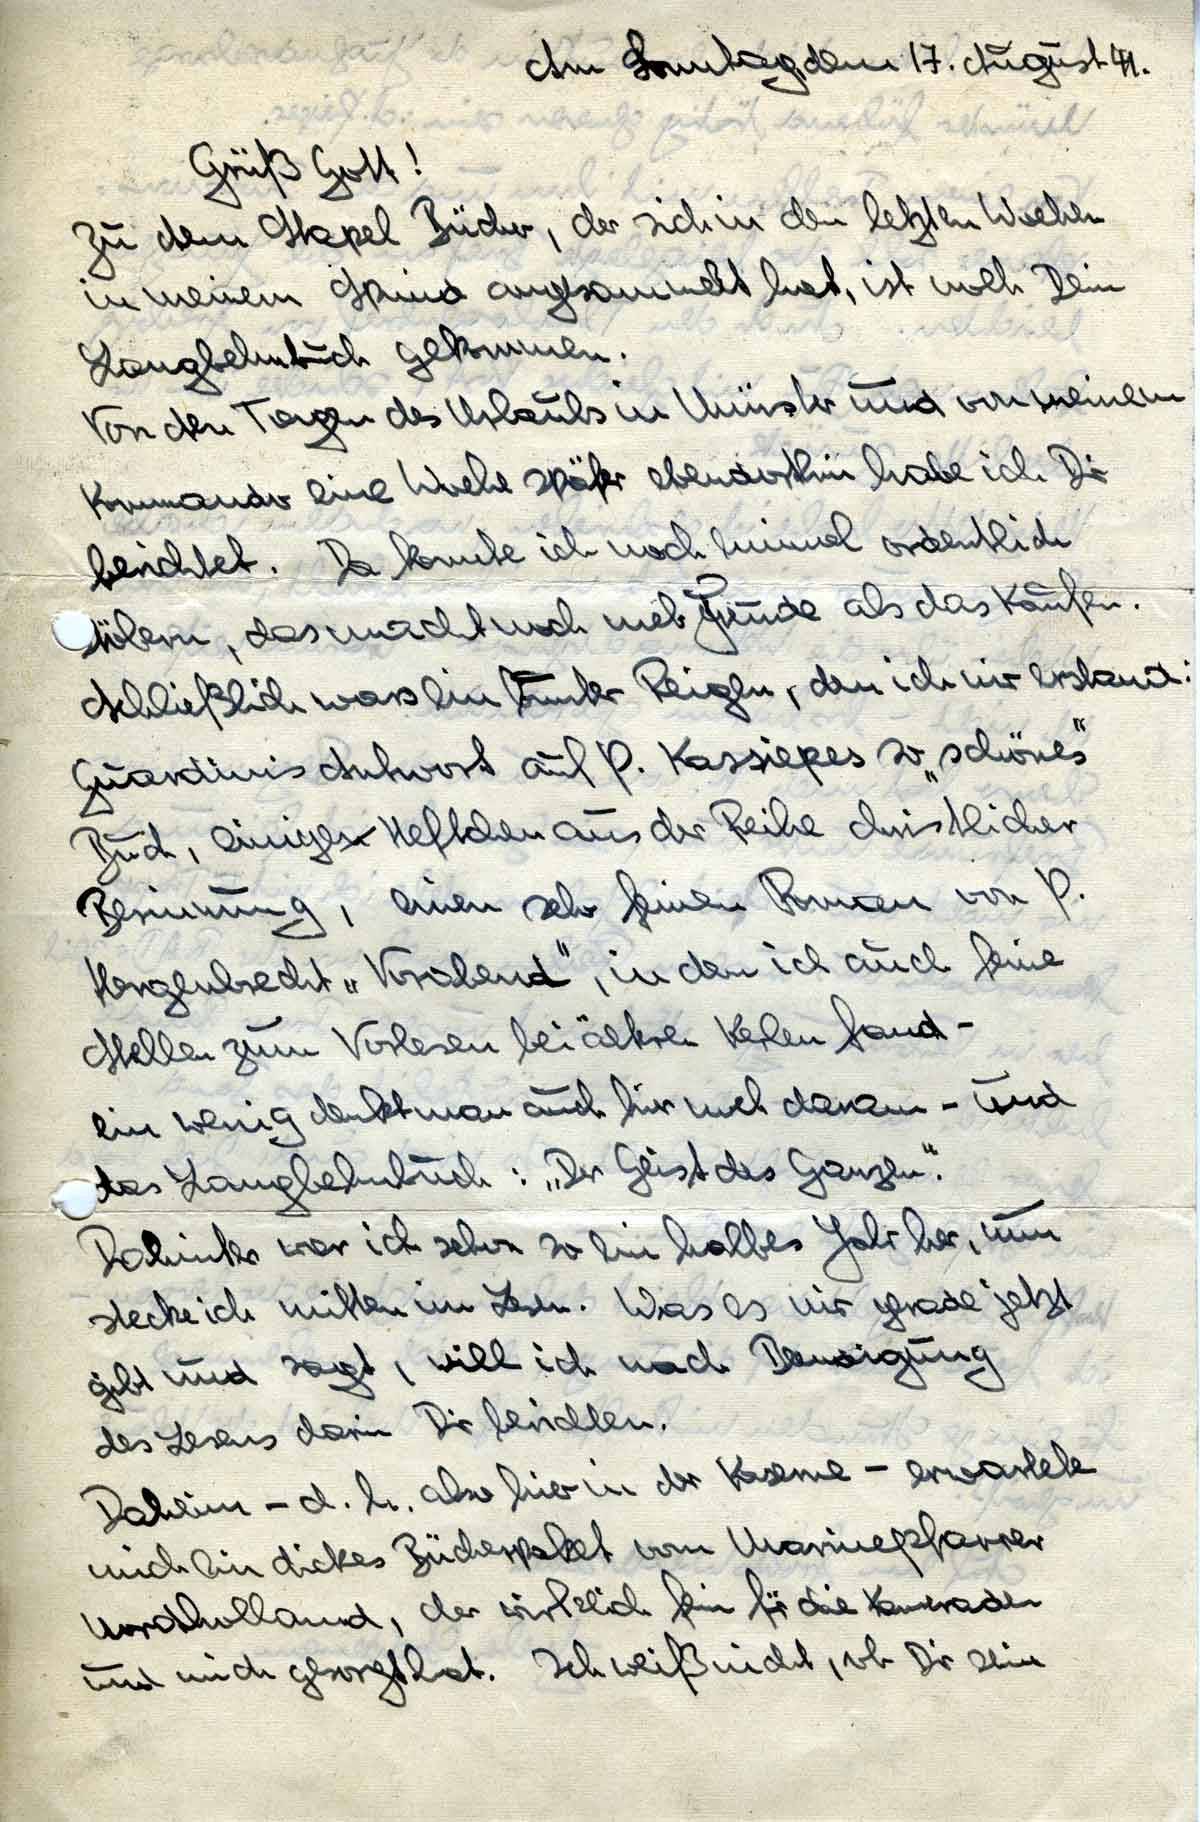 Am Sonntag, dem 17. August 41.
Grüß Gott!
Zu dem Stapel Bücher, der sich in den letzten Wochen
in meinem Spind angesammelt hat, ist noch Dein
Langbehnbuch gekommen.
Von den Tagen des Urlaubs in Münster und von meinem
Kommando eine Woche später ebendorthin habe ich Dir
berichtet. Da konnte ich noch einmal ordentlich
stöbern, das macht noch mehr Freude als das Kaufen.
Schließlich wars ein bunter Reigen, den ich mir erstand:
Guardinis Antwort auf P. Kassiepes so „schönes"
Buch, einige Heftchen aus der Reihe christlicher
Besinnung, einen sehr feinen Roman von P.
Hergenbrecht „Vorabend", in dem ich auch feine
Stellen zum Vorlesen bei älteren Kerlen fand –
ein wenig denkt man auch hier noch daran – und
das Langbehnbuch: „Der Geist des Ganzen".
Dahinter war ich schon so ein halbes Jahr her, nun
stecke ich mitten im Lesen. Was es mir grade jetzt
gibt und sagt, will ich nach Beendigung
des Lesens darin Dir berichten.
Daheim – d. h. also hier in der Kaserne – erwartete
mich ein dickes Bücherpaket vom Marinepfarrer
Nordholland, der wirklich fein für die Kameraden
und mich gesorgt hat. Ich weiß nicht, ob Dir sein